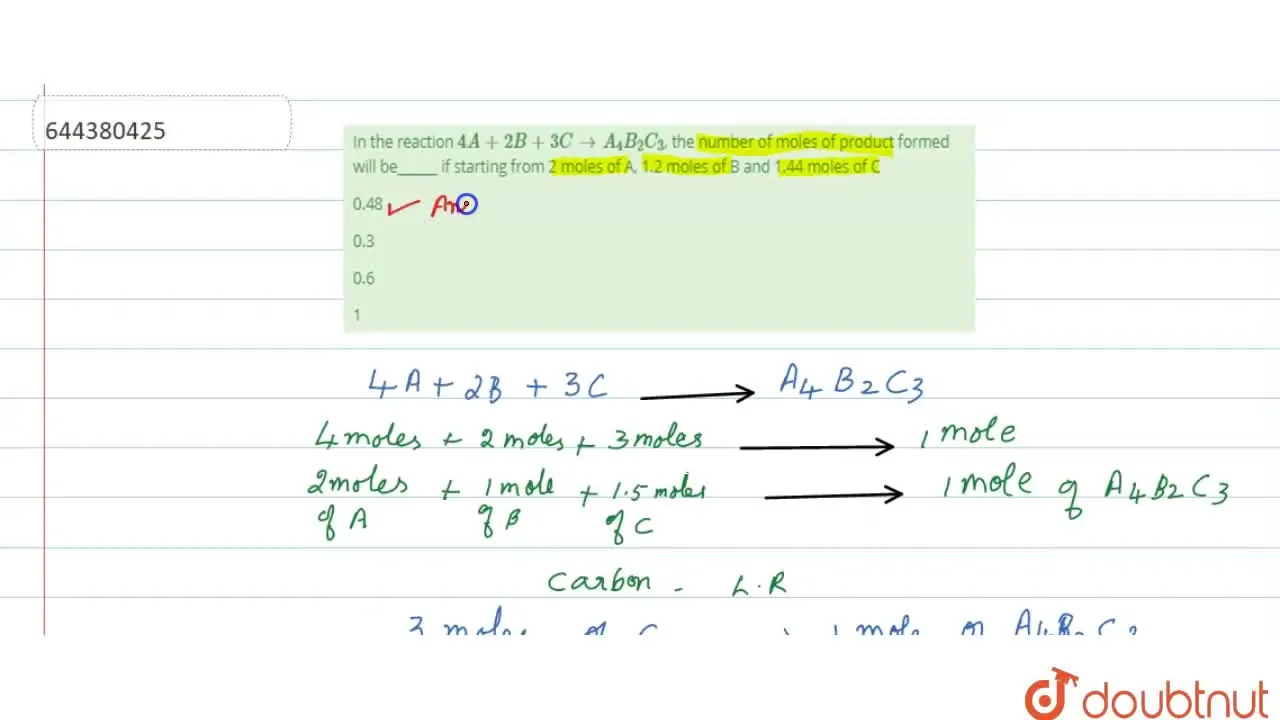 644380425
In the reaction 4A + 2B + 3C → A₄B₂C₃, the number of moles of product formed
will be_____ if starting from 2 moles of A, 1.2 moles of B and 1.44 moles of C
0.48 ✓ An
0.3
0.6
1
4A + 2B + 3C ⟶ A₄B₂C₃
4 moles + 2 moles + 3 moles ⟶ 1 mole
2 moles + 1 mole + 1.5 moles ⟶ 1 mole of A₄B₂C₃
of A of B of C
Carbon - L.R
3 moles of C 1 mole of A₄B₂C₃
doubtnut